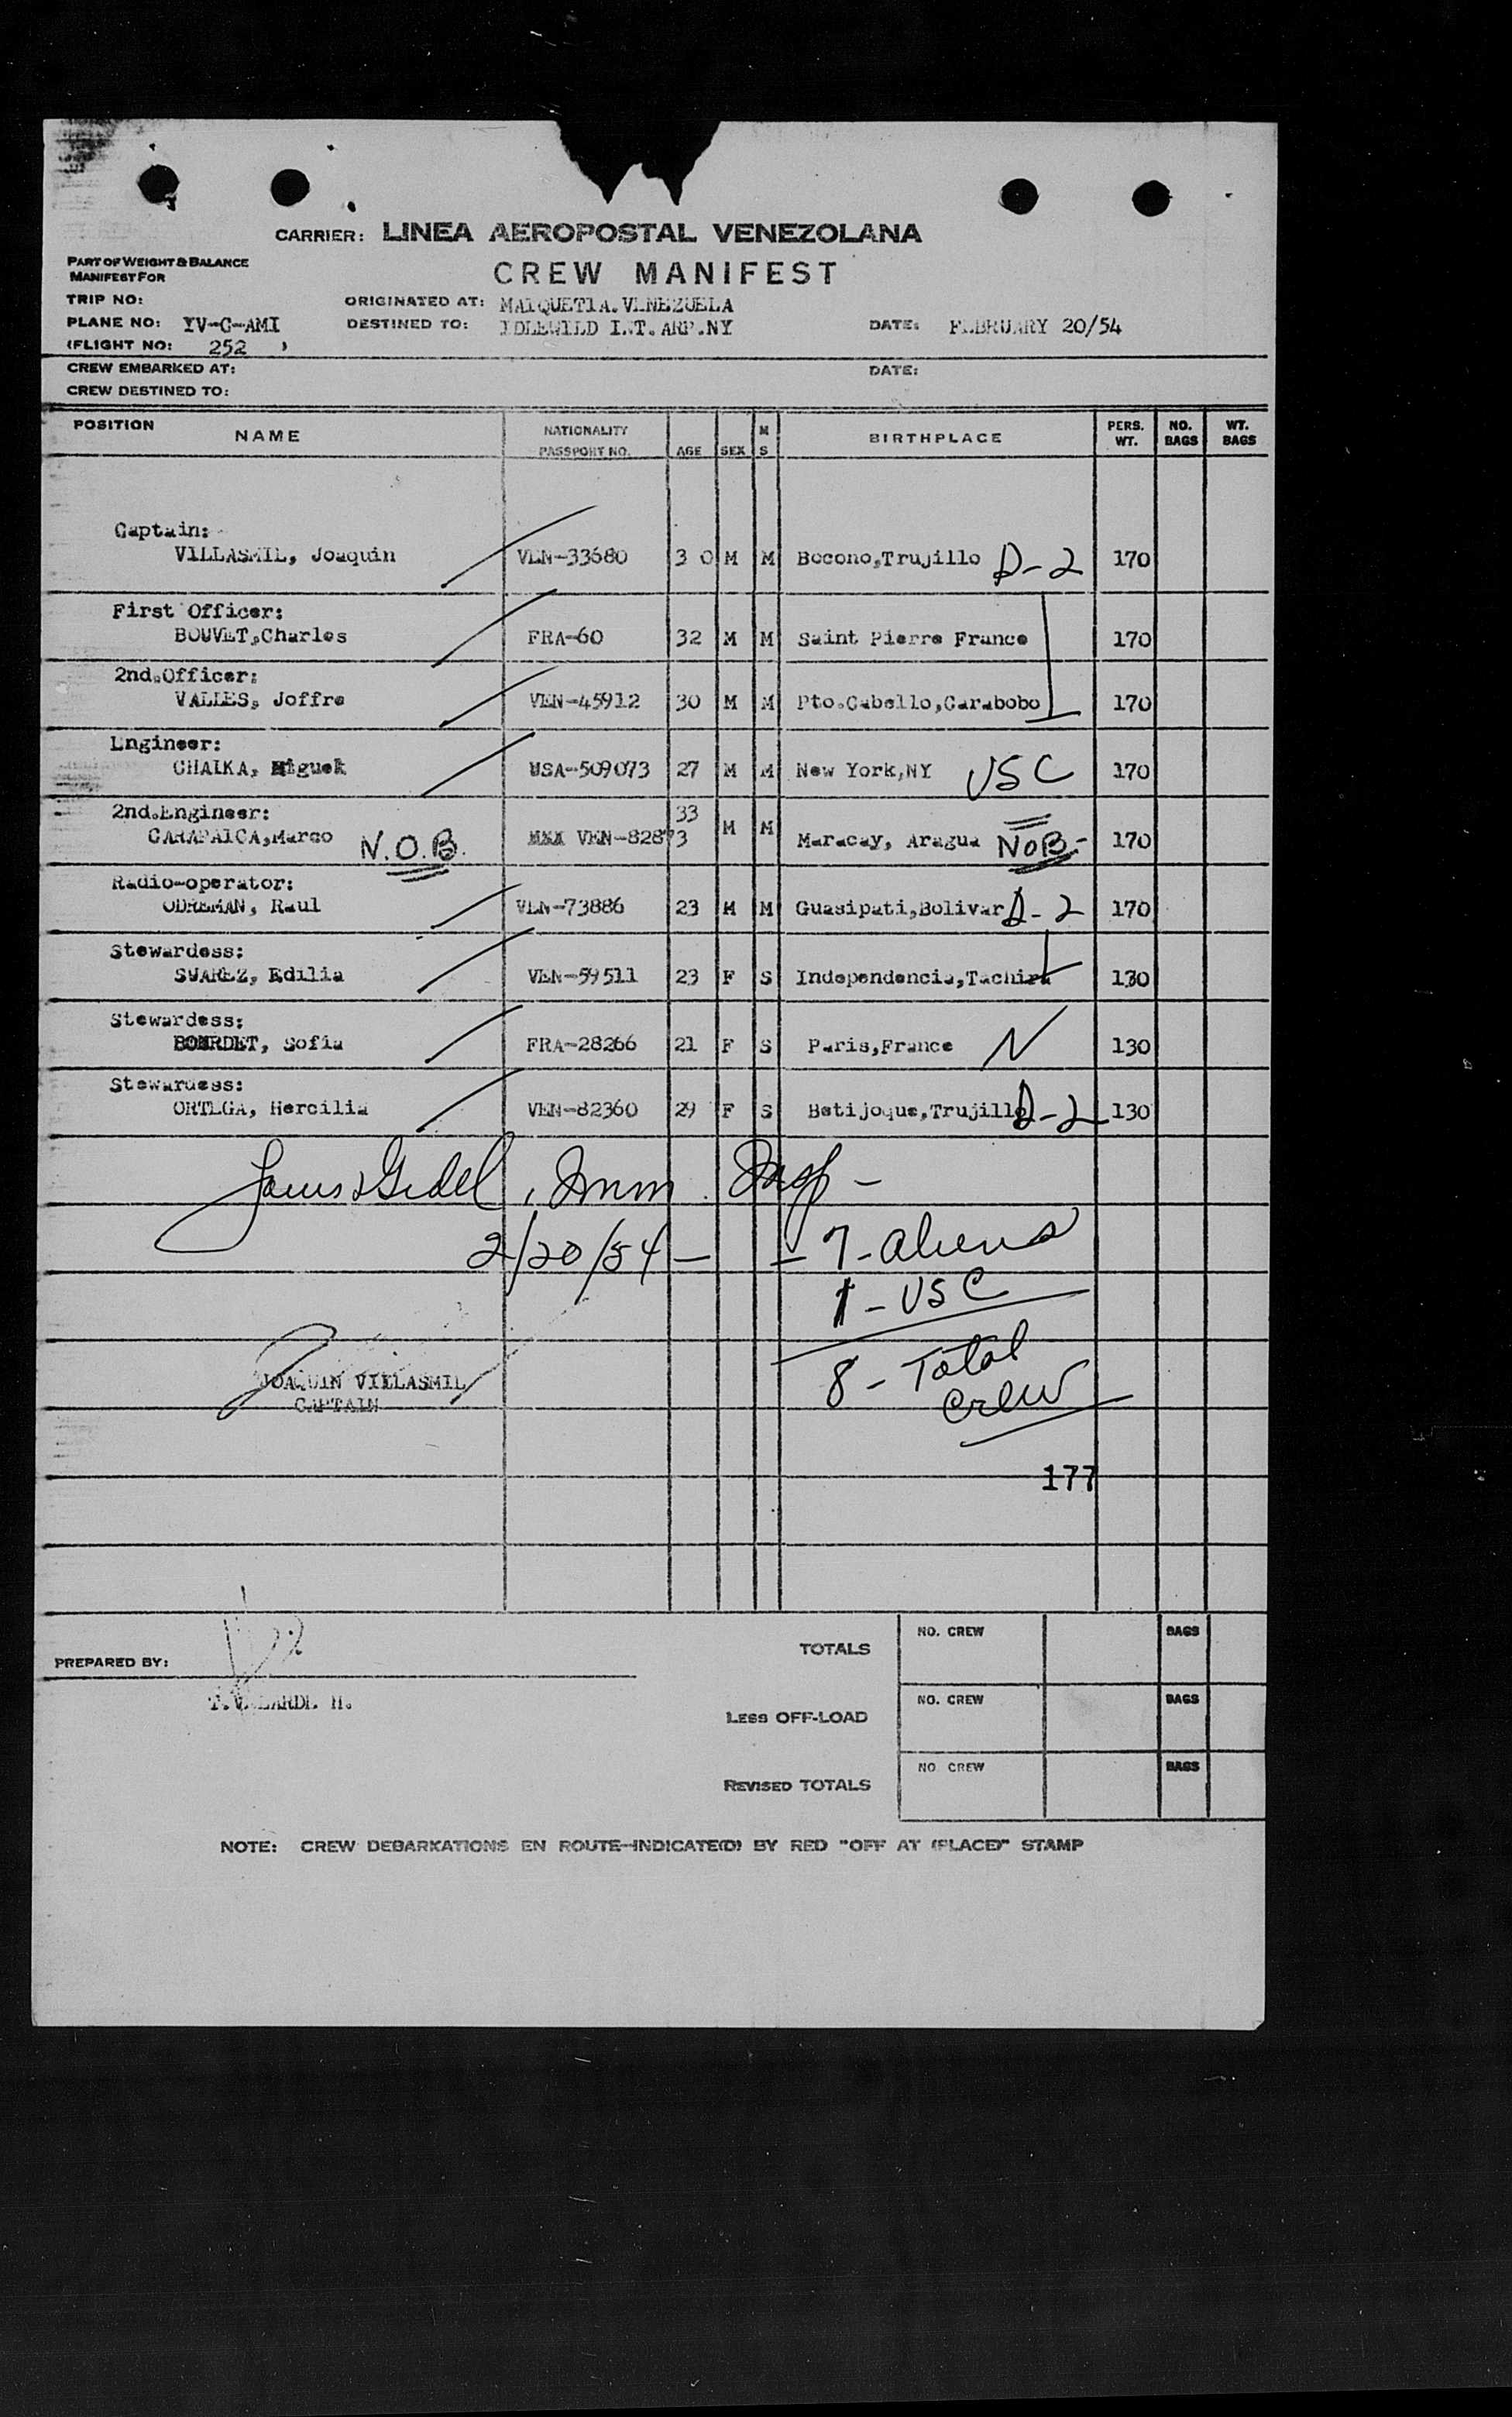 CARRIER: LINEA AEROPOSTAL VENEZOLANA
PART OF WEIGHT & BALANCE
MANIFEST FOR
CREW MANIFEST
TRIP NO: ORIGINATED AT: MAIQUETIA.VENEZUELA
PLANE NO: YV-C-AMI DESTINED TO: IDLEWILD INT.ARP.NY DATE: FEBRUARY 20/54
(FLIGHT NO: 252 )
CREW EMBARKED AT: DATE:
CREW DESTINED TO:
POSITION NAME NATIONALITY PASSPORT NO. AGE SEX M S BIRTHPLACE PERS. WT. NO. BAGS WT. BAGS
Captain:
VILLASMIL, Joaquin VEN-33680 3 0 M M Bocono,Trujillo D-2 170
First Officer:
BOUVET,Charles FRA-60 32 M M Saint Pierre France 170
2nd.Officer:
VALLES, Joffre VEN-45912 30 M M Pto.Cabello,Carabobo 170
Engineer:
CHALKA, Miguel USA-509073 27 M M New York,NY USC 170
2nd.Engineer: 33
CARAPAICA,Marco N.O.B. VEN-82873 M M Maracay, Aragua NOB- 170
Radio-operator:
ODREMAN, Raul VEN-73886 23 M M Guasipati,Bolivar D-2 170
Stewardess:
SUAREZ, Edilia VEN-59511 23 F S Independencia,Tachira 130
Stewardess:
BOURDET, Sofia FRA-28266 21 F S Paris,France N 130
Stewardess:
ORTEGA, Hercilia VEN-82360 29 F S Betijoque,Trujillo D-2 130
Imm. Insp -
2/20/54 - - 7 - aliens
1 - USC
8 - Total
Crew
JOAQUIN VILLASMIL
CAPTAIN
177
PREPARED BY:
TOTALS NO. CREW BAGS
LESS OFF-LOAD NO. CREW BAGS
REVISED TOTALS NO. CREW BAGS
NOTE: CREW DEBARKATIONS EN ROUTE-INDICATE(D) BY RED "OFF AT (PLACE)" STAMP